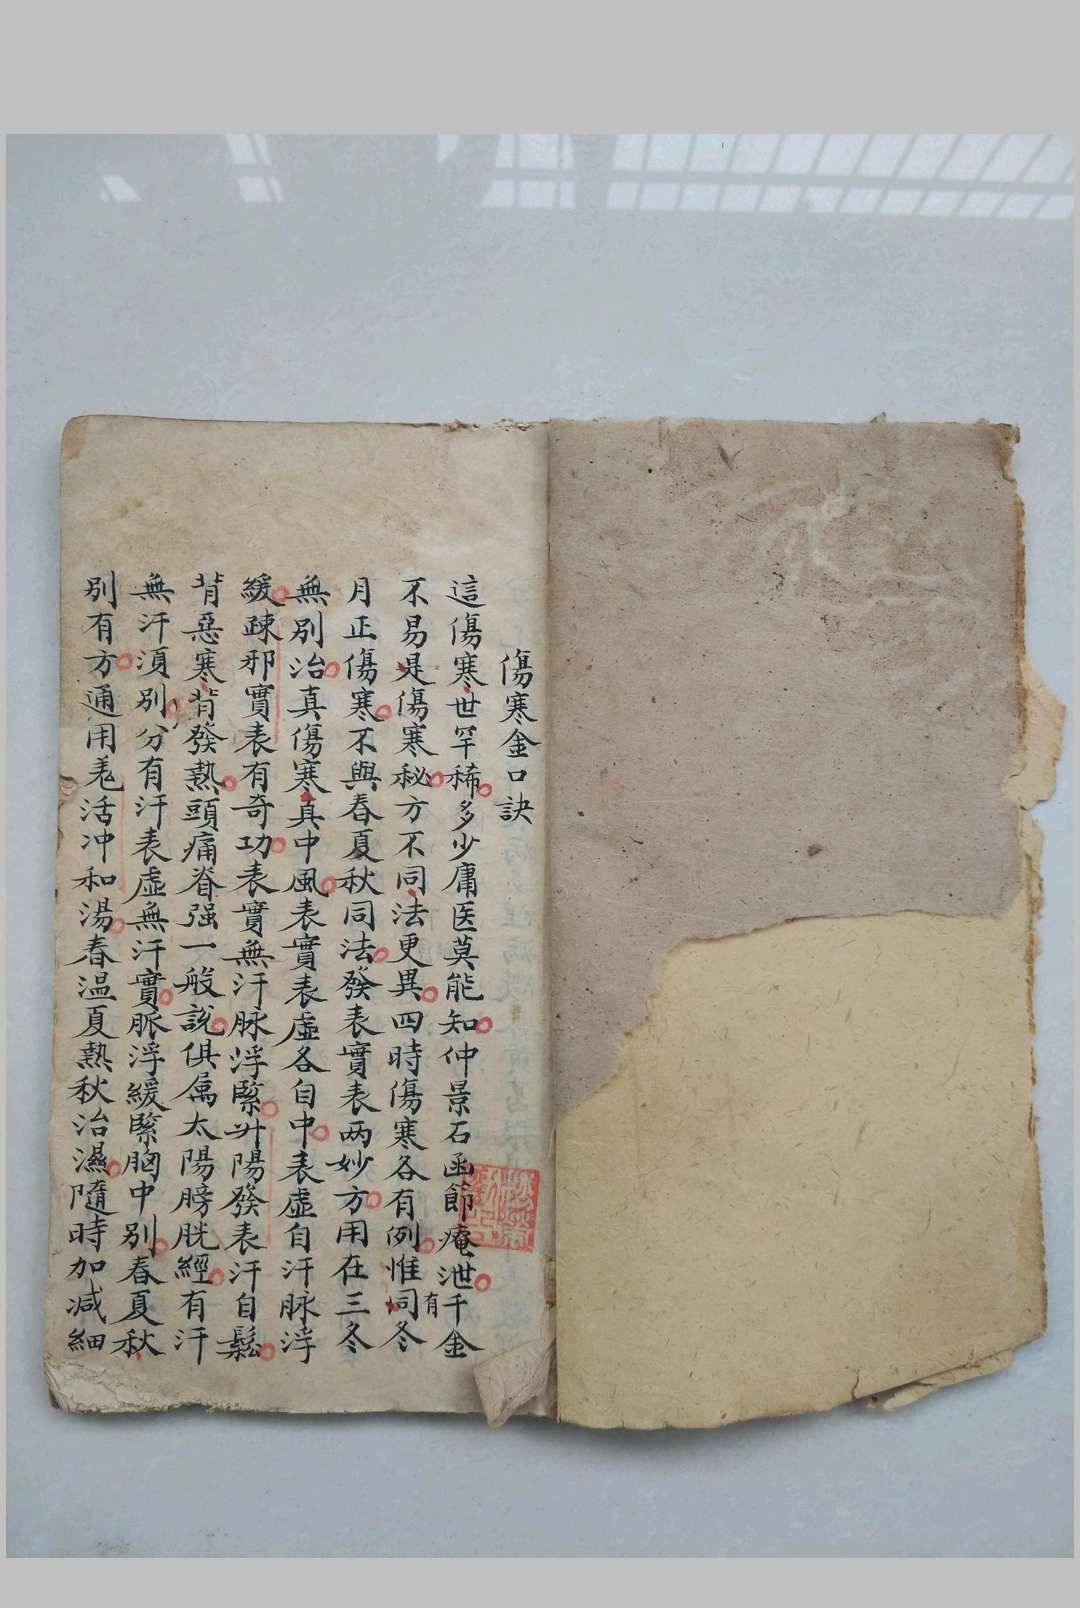 傷寒金口訣
這傷寒世罕稀多少庸医莫能知仲景石函節庵泄千金
不易是傷寒秘方不同法更異四時傷寒各有例惟同有冬
月正傷寒不與春夏秋同法發表實表两妙方用在三冬
無別治真傷寒真中風表實表虛各自中表虛自汗脉浮
緩疎邪實表有奇功表實無汗脉浮緊升陽發表汗自鬆
背惡寒背發熱頭痛脊强一般說俱属太陽膀胱經有汗
無汗須別分有汗表虛無汗實脈浮緩緊胸中別春夏秋
別有方通用羗活冲和湯春温夏熱秋治濕隨時加减細